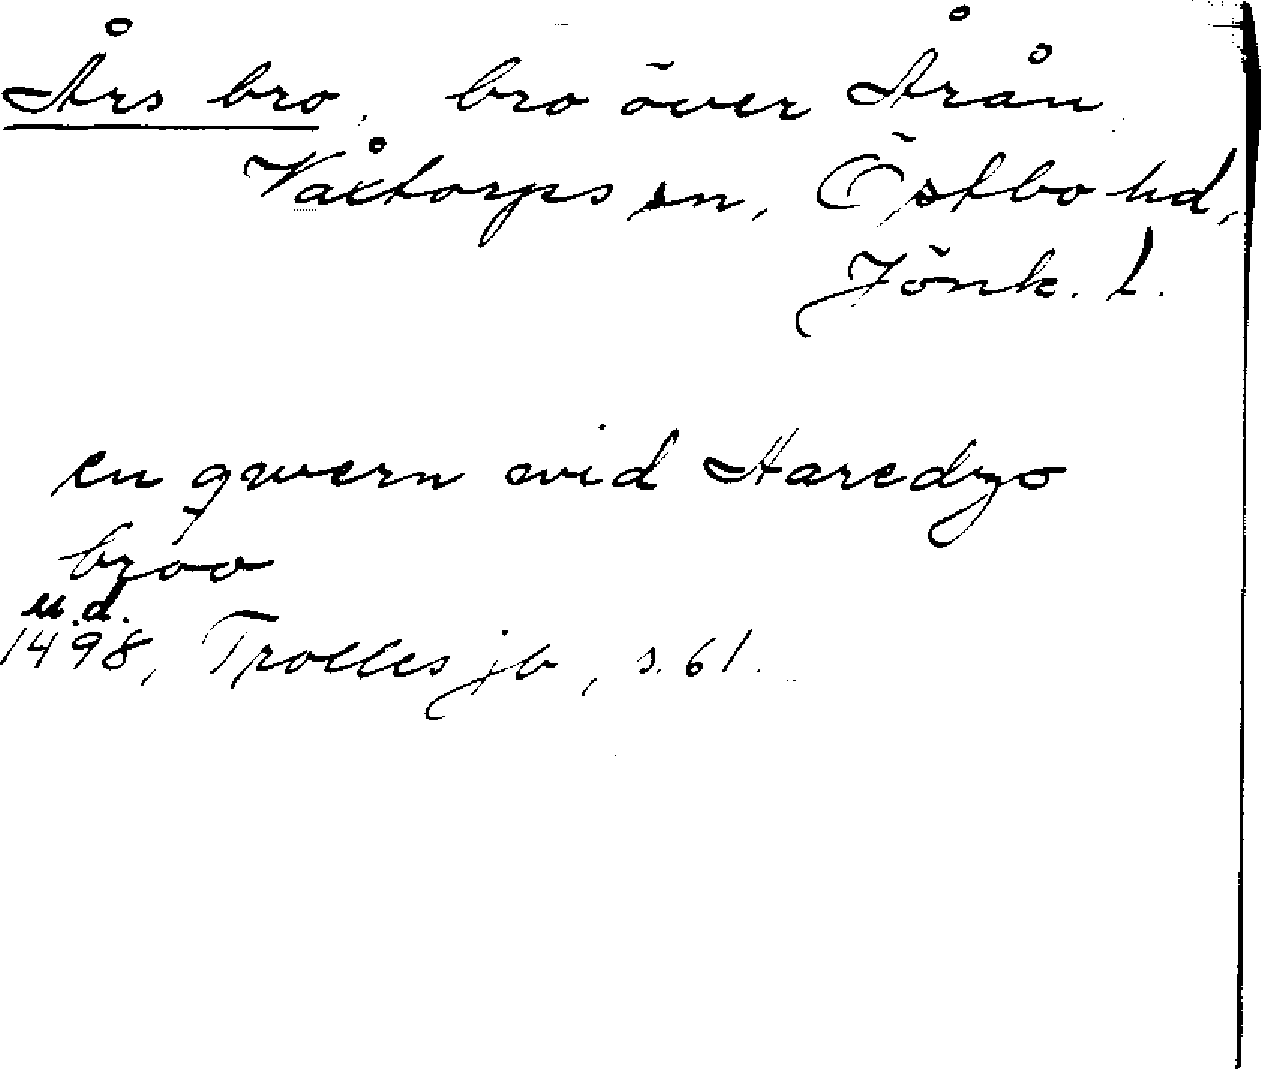 Års bro, bro över Årån
Våltorps sn, Östbo hd,
Jönk. l.
en qwern wid Haredzo
broo
u.d.
1498, Trolles jb, s. 61.